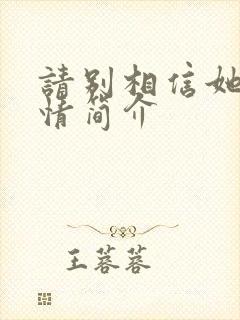 請别相信她
情简介
王蓉蓉